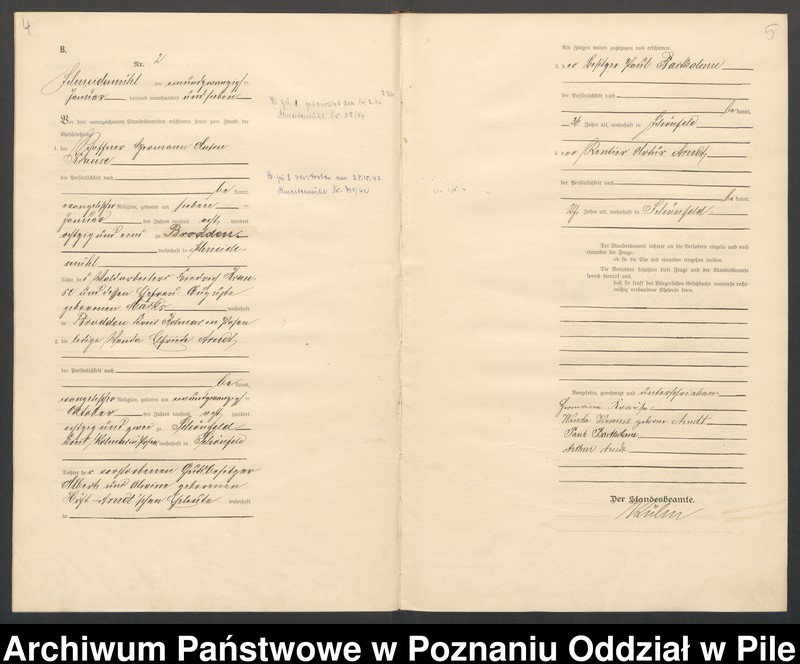 4
B.
Nr. 2
Schneidemühl am einundzwanzig=
ten
Januar tausend neunhundert und sieben
Vor dem unterzeichneten Standesbeamten erschienen heute zum Zwecke der
Eheschließung:
1. der Schaffner Hermann
Krause
der Persönlichkeit nach
be kannt,
evangelischer Religion, geboren am sieben
ten
Januar des Jahres tausend acht hundert
achtzig und eins zu Brodden
wohnhaft in Schneide=
mühl
Sohn des Waldarbeiters Friedrich Krau=
se und dessen Ehefrau Auguste
geborenen Marks wohnhaft
in Brodden Kreis Kolmar in Posen
2. die ledige Wanda Arndt
der Persönlichkeit nach
be kannt,
evangelischer Religion, geboren am einundzwanzig=
Oktober des Jahres tausend acht hundert
achtzig und zwei zu Schönfeld
Kreis Kolmar in Posen wohnhaft in Schönfeld
Tochter der verstorbenen Gutsbesitzer
Albert und geborenen
Arndt'schen Eheleute wohnhaft
in
Schneidemühl Nr.
zu 2 verstorben am
Schneidemühl Nr.
5
Als Zeugen waren zugezogen und erschienen:
3. der Besitzer Paul Bartholome
der Persönlichkeit nach
be kannt,
36 Jahre alt, wohnhaft in Schönfeld
4. der Rentier Artur Arndt
der Persönlichkeit nach
be kannt,
Jahre alt, wohnhaft in Schönfeld
Der Standesbeamte richtete an die Verlobten einzeln und nach
einander die Frage:
ob sie die Ehe mit einander eingehen wollen.
Die Verlobten bejahten diese Frage und der Standesbeamte
sprach hierauf aus,
daß sie kraft des Bürgerlichen Gesetzbuchs nunmehr recht=
mäßig verbundene Eheleute seien.
Vorgelesen, genehmigt und unterschrieben
Hermann Krause
Wanda Krause geborene Arndt
Paul Bartholome
Arthur Arndt
Der Standesbeamte.
Archiwum Państwowe w Poznaniu Oddział w Pile